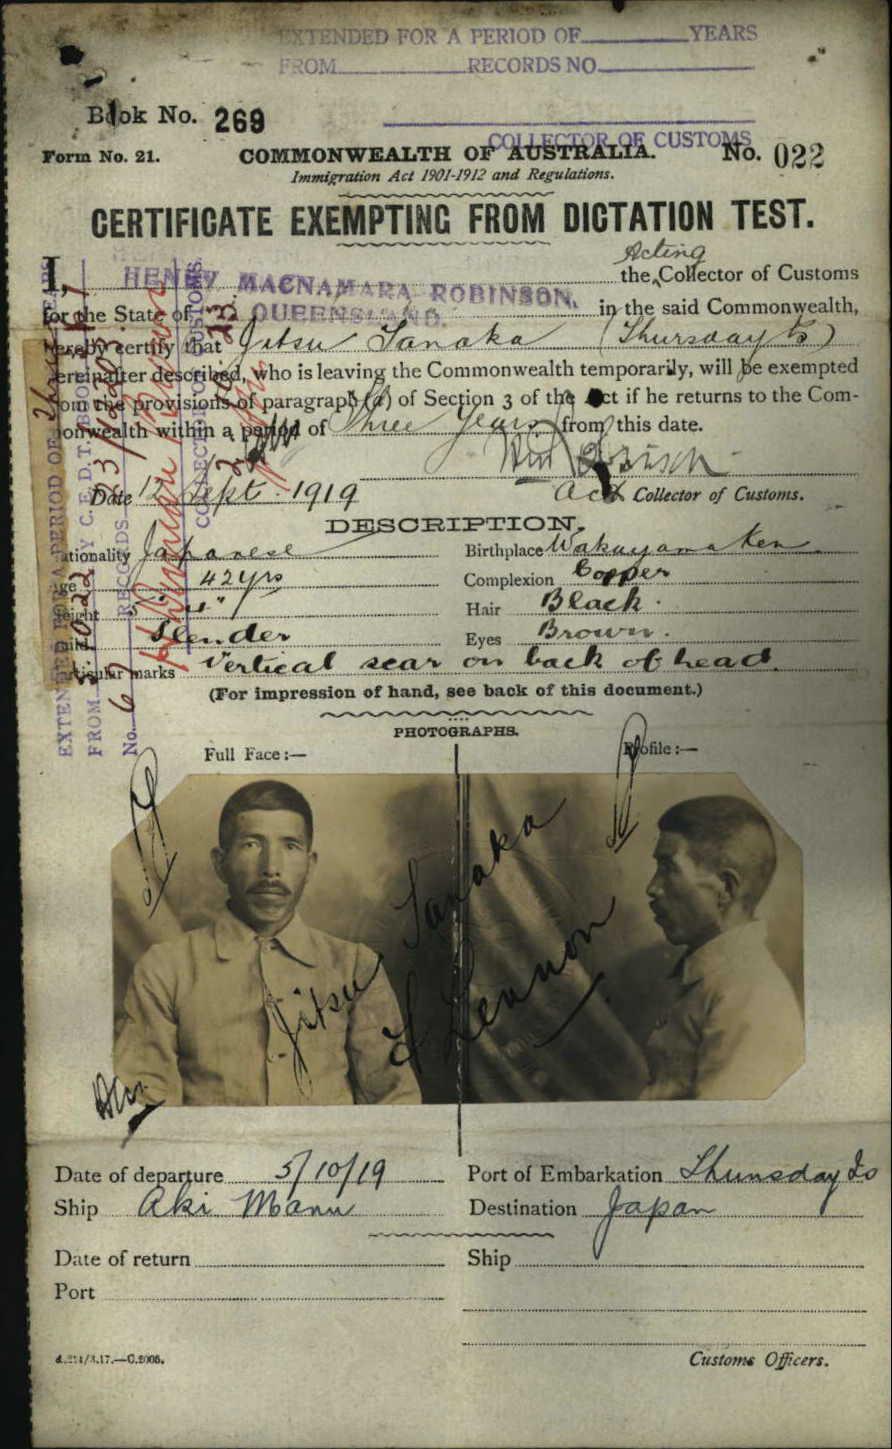 EXTENDED FOR A PERIOD OF YEARS
FROM RECORDS NO
COLLECTOR OF CUSTOMS
Book No. 269
Form No. 21. COMMONWEALTH OF AUSTRALIA. No. 022
Immigration Act 1901-1912 and Regulations.
CERTIFICATE EXEMPTING FROM DICTATION TEST.
Acting
I, HENRY MACNAMARA ROBINSON. the Collector of Customs
for the State of QUEENSLAND. in the said Commonwealth,
hereby certify that Jitsu Tanaka (Thursday Is)
hereinafter described, who is leaving the Commonwealth temporarily, will be exempted
from the provisions of paragraph (a) of Section 3 of the Act if he returns to the Com-
monwealth within a period of Three Years from this date.
Date 12 Sept. 1919 Act Collector of Customs.
DESCRIPTION.
Nationality Japanese Birthplace Wakayama Ken
Age 42 yrs Complexion Copper
Height Hair Black.
Build Slender Eyes Brown.
Particular marks Vertical scar on back of head.
(For impression of hand, see back of this document.)
PHOTOGRAPHS.
Full Face:— Profile:—
Jitsu Tanaka
Lennon
Date of departure 5/10/19 Port of Embarkation Thursday Is
Ship Aki Maru Destination Japan
Date of return Ship
Port
Customs Officers.
EXTENDED FOR A PERIOD OF
FROM
No. RECORDS
COLLECTOR OF CUSTOMS.